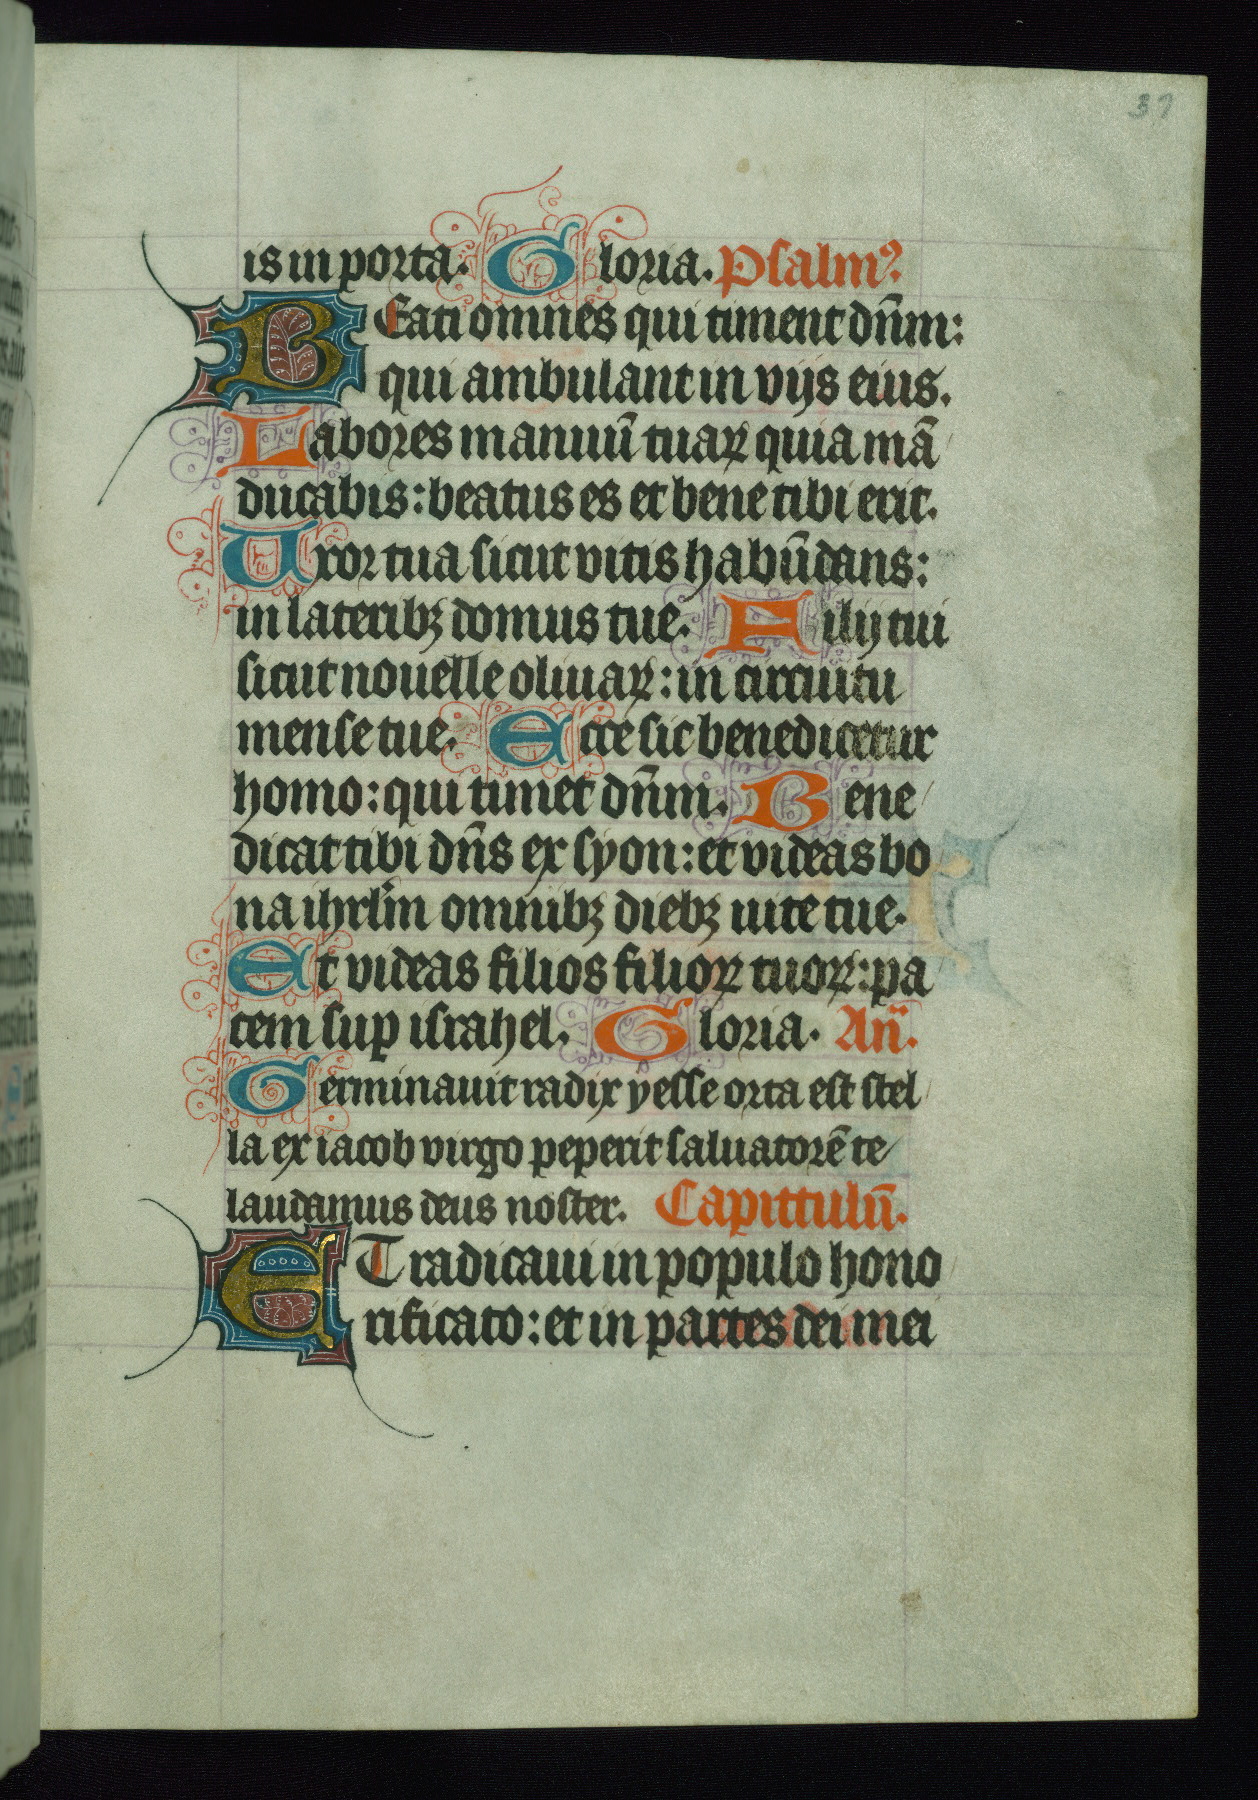 37
is in porta. Gloria. Psalmꝰ.
BEati omnes qui timent dn̄m:
qui ambulant in vijs eius.
Labores manuū tuaꝝ quia mā
ducabis: beatus es et bene tibi erit.
Uxor tua sicut vitis habūdans:
in lateribꝫ domus tue. Filij tui
sicut nouelle oliuaꝝ: in circuitu
mense tue. Ecce sic benedicetur
homo: qui timet dn̄m. Bene
dicat tibi dn̄s ex syon: et videas bo
na ihrl̄m omnibꝫ diebꝫ uite tue.
Et videas filios filioꝝ tuoꝝ: pa
cem suꝑ israhel. Gloria. An̄.
Germinauit radix yesse orta est stel
la ex iacob virgo peperit saluatorē te
laudamus deus noster. Capittulū.
ET radicaui in populo hono
rificato: et in partes dei mei